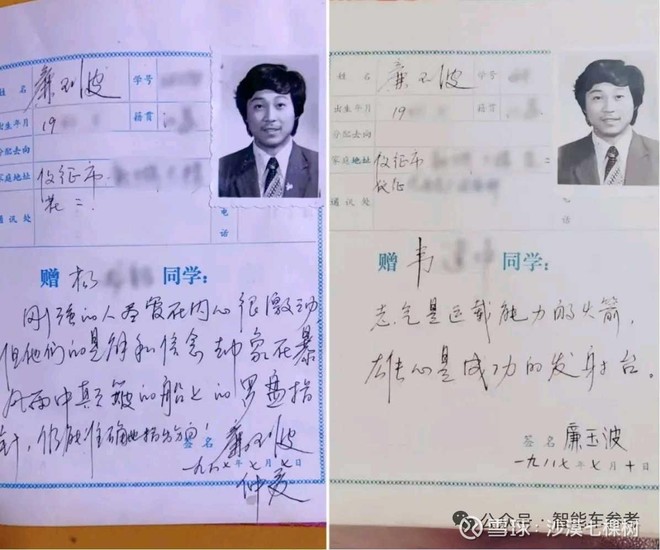 姓名
廉玉波
学号
出生年月
19
籍贯
分配去向
家庭地址
仪征市
通讯处
花二
电话
赠 杨 同学：
刚强的人尽管在内心很激动
但他们的见解和信念却象在暴
风雨中颠簸的船上的罗盘指
针，仍能准确地指出方向！
签名 廉玉波
一九八七年七月七日
姓名
廉玉波
学号
出生年月
19
籍贯
分配去向
家庭地址
仪征市
通讯处
电话
赠 韦 同学：
志气是运载能力的火箭，
雄心是成功的发射台。
签名 廉玉波
一九八七年七月十日
公众号·智能车参考
雪球：沙漠七棵树